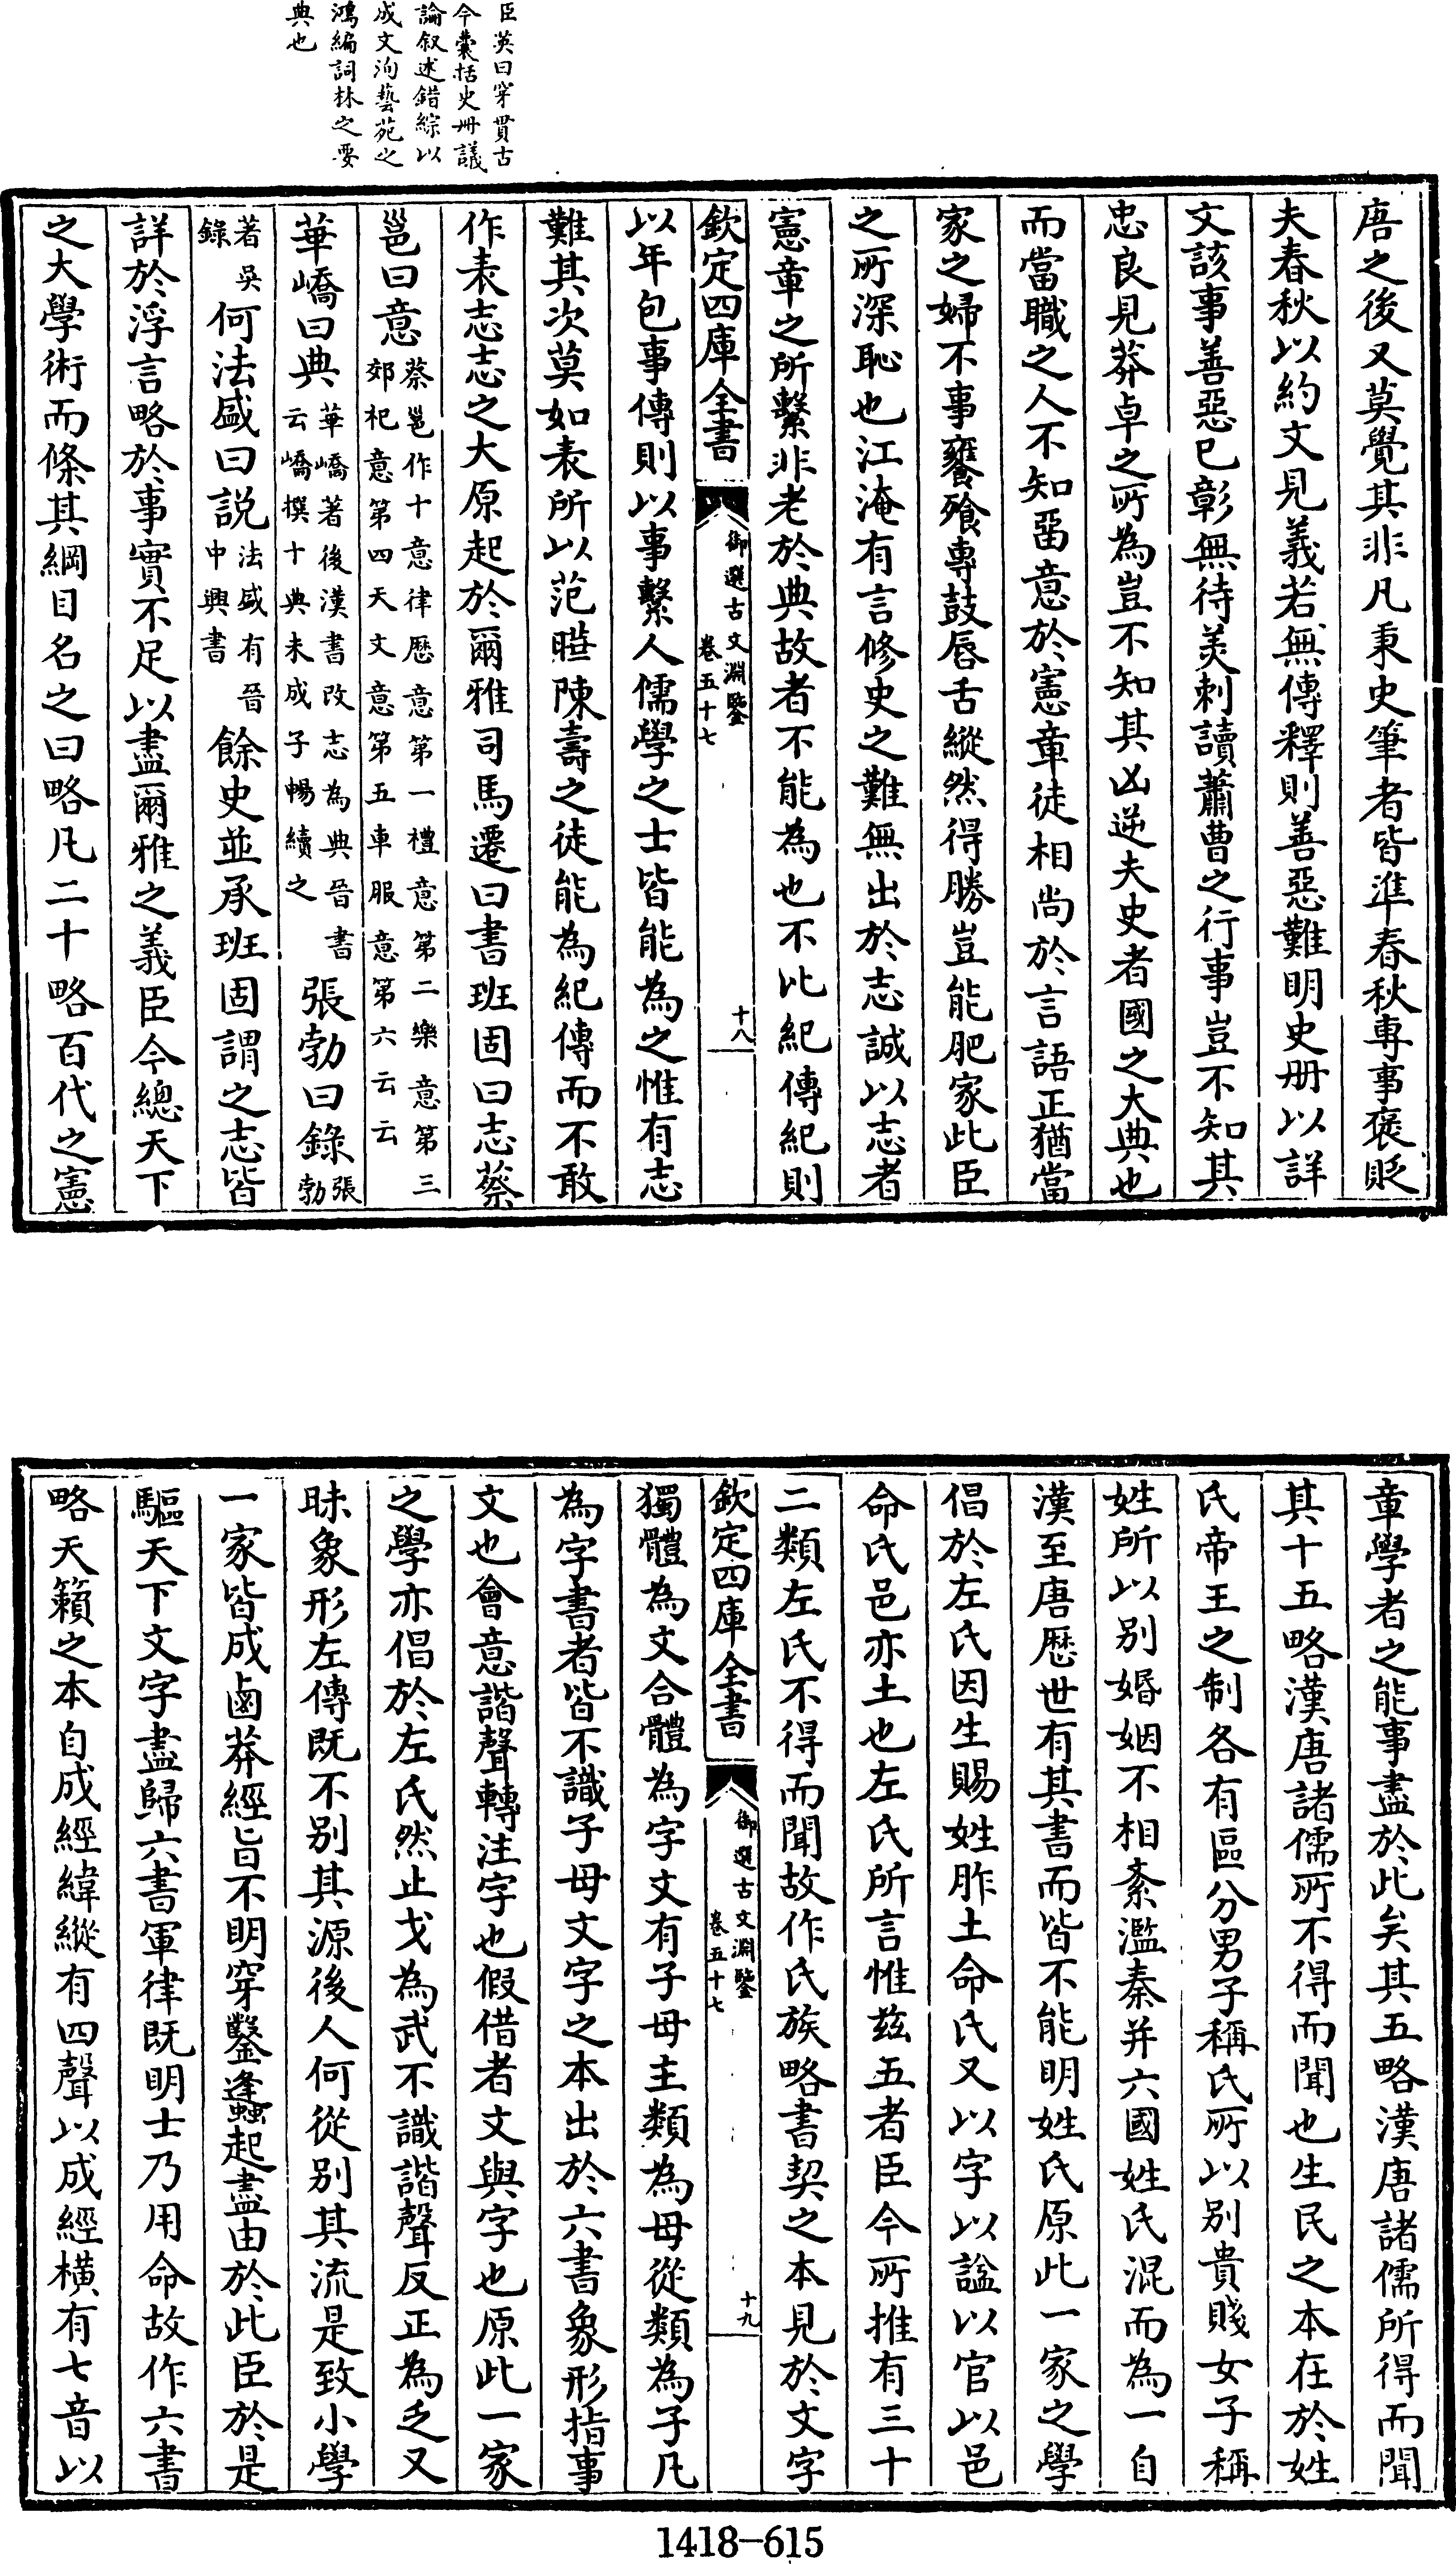 臣英曰穿貫古
今囊括史冊議
論叙述錯綜以
成文洵藝苑之
鴻編詞林之要
典也
唐之後又莫覺其非凡秉史筆者皆準春秋專事褒貶
夫春秋以約文見義若無傳釋則善惡難明史册以詳
文該事善惡已彰無待美刺讀蕭曹之行事豈不知其
忠良見莽卓之所為豈不知其凶逆夫史者國之大典也
而當職之人不知畱意於憲章徒相尚於言語正猶當
家之婦不事饔飱專鼓唇舌縱然得勝豈能肥家此臣
之所深恥也江淹有言修史之難無出於志誠以志者
憲章之所繫非老於典故者不能為也不比紀傳紀則
欽定四庫全書
御選古文淵鑒
卷五十七
十八
以年包事傳則以事繫人儒學之士皆能為之惟有志
難其次莫如表所以范曄陳壽之徒能為紀傳而不敢
作表志志之大原起於爾雅司馬遷曰書班固曰志蔡
邕曰意蔡邕作十意律歷意第一禮意第二樂意第三
郊祀意第四天文意第五車服意第六云云
華嶠曰典華嶠著後漢書改志為典晉書
云嶠撰十典未成子暢續之張勃曰錄張
勃
著吳
錄何法盛曰説法盛有晉
中興書餘史並承班固謂之志皆
詳於浮言略於事實不足以盡爾雅之義臣今總天下
之大學術而條其綱目名之曰略凡二十略百代之憲
章學者之能事盡於此矣其五略漢唐諸儒所得而聞
其十五略漢唐諸儒所不得而聞也生民之本在於姓
氏帝王之制各有區分男子稱氏所以别貴賤女子稱
姓所以别婚姻不相紊濫秦并六國姓氏混而為一自
漢至唐歷世有其書而皆不能明姓氏原此一家之學
倡於左氏因生賜姓胙土命氏又以字以諡以官以邑
命氏邑亦土也左氏所言惟兹五者臣今所推有三十
二類左氏不得而聞故作氏族略書契之本見於文字
欽定四庫全書
御選古文淵鑒
卷五十七
十九
獨體為文合體為字文有子母主類為母從類為子凡
為字書者皆不識子母文字之本出於六書象形指事
文也會意諧聲轉注字也假借者文與字也原此一家
之學亦倡於左氏然止戈為武不識諧聲反正為乏又
昧象形左傳既不别其源後人何從别其流是致小學
一家皆成鹵莽經旨不明穿鑿逢蠭起盡由於此臣於是
驅天下文字盡歸六書軍律既明士乃用命故作六書
略天籟之本自成經緯縱有四聲以成經横有七音以
1418-615